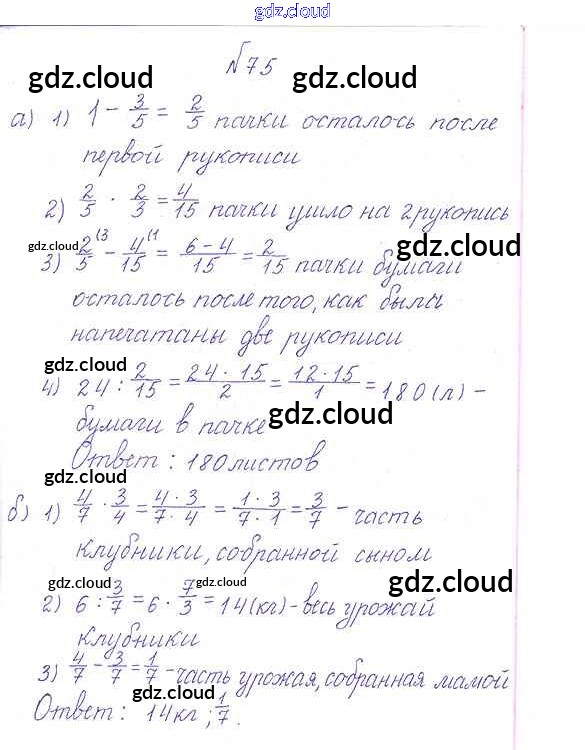 gdz.cloud
№75
gdz.cloud gdz.cloud
а) 1) 1 - 3/5 = 2/5 пачки осталось после
первой рукописи
2) 2/5 · 2/3 = 4/15 пачки ушло на 2 рукопись
gdz.cloud gdz.cloud
3) 2/5 (3 - 4/15 (1 = 6-4/15 = 2/15 пачки бумаги
осталось после того, как были
напечатаны две рукописи
gdz.cloud
4) 24 : 2/15 = 24·15/2 = 12·15/1 = 180 (л) -
бумаги в пачке gdz.cloud
Ответ: 180 листов
gdz.cloud
б) 1) 4/7 · 3/4 = 4·3/7·4 = 1·3/7·1 = 3/7 - часть
клубники, собранной сыном
gdz.cloud gdz.cloud gdz.cloud
2) 6 : 3/7 = 6 · 7/3 = 14 (кг) - весь урожай
клубники
3) 4/7 - 3/7 = 1/7 - часть урожая, собранная мамой
gdz.cloud gdz.cloud
Ответ: 14 кг; 1/7.